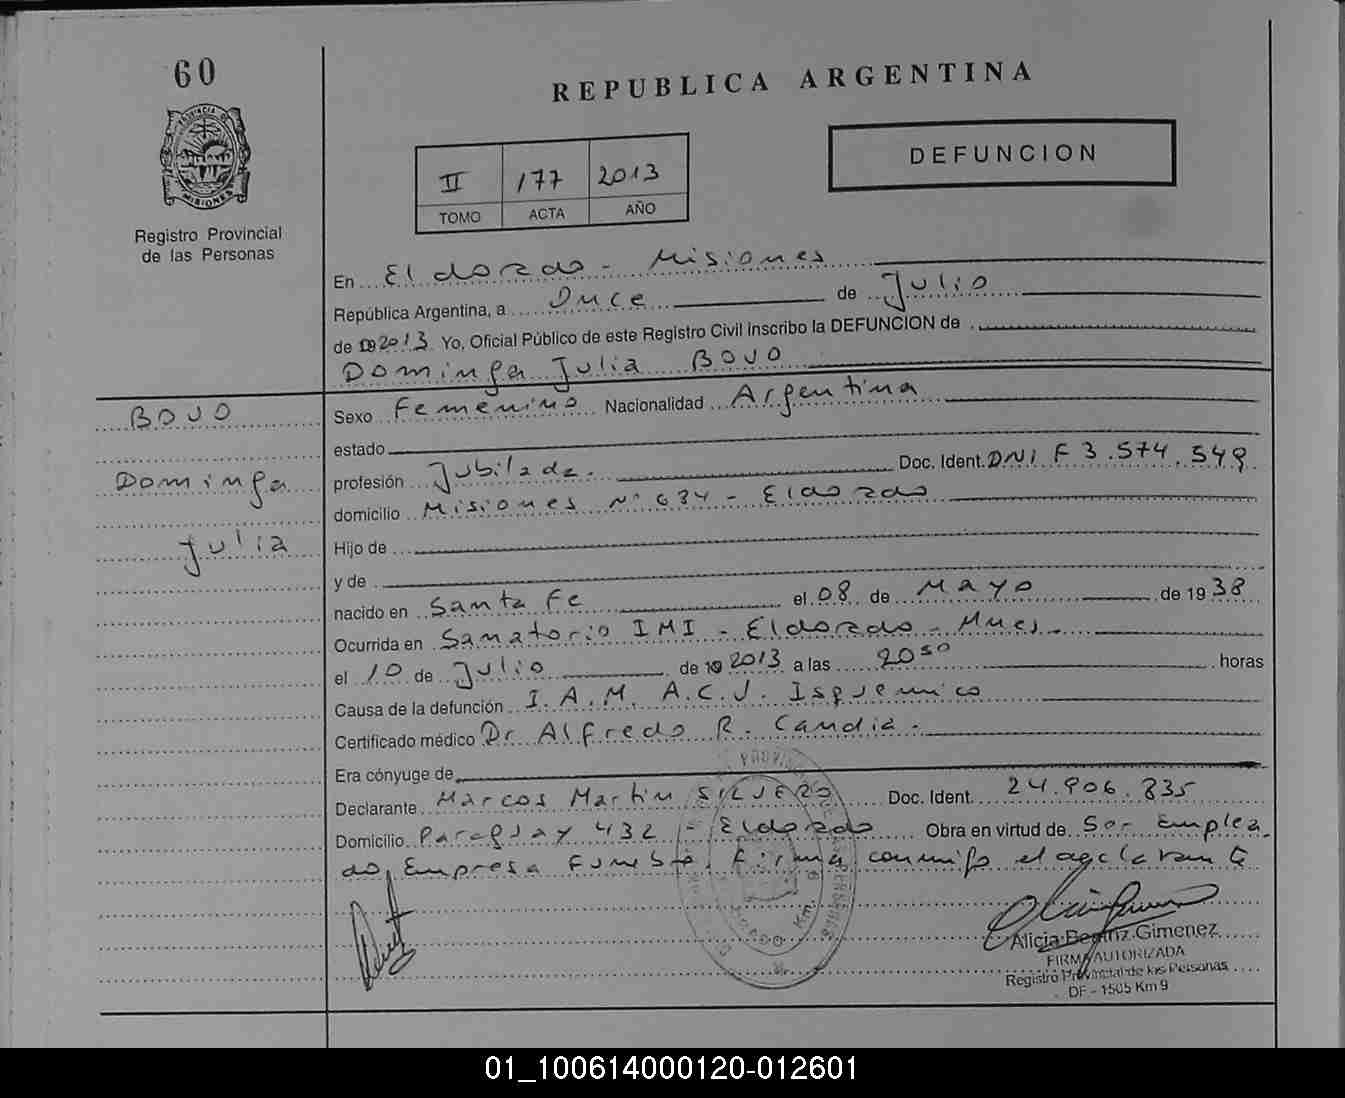 60
REPUBLICA ARGENTINA
PROVINCIA DE
MISIONES
Registro Provincial
de las Personas
II 177 2013
TOMO ACTA AÑO
DEFUNCION
En Eldorado - Misiones
República Argentina, a Once de Julio
de 2013 Yo, Oficial Público de este Registro Civil inscribo la DEFUNCION de
Dominga Julia BOJO
BOJO
Dominga
Julia
Sexo Femenino Nacionalidad Argentina
estado
profesión Jubilada. Doc. Ident. DNI F 3.574.549
domicilio Misiones N° 634 - Eldorado
Hijo de
y de
nacido en Santa Fe el 08 de Mayo de 1938
Ocurrida en Sanatorio IMI - Eldorado - Mnes.
el 10 de Julio de 2013 a las 20 50 horas
Causa de la defunción I.A.M. A.C.J. Isquemico
Certificado médico Dr Alfredo R. Candia.
Era cónyuge de
Declarante Marcos Martin SILVERO Doc. Ident. 24.906.835
Domicilio Paraguay 432 - Eldorado Obra en virtud de Ser emplea
do Empresa Funebre. Firma conmigo el declarante
Alicia Beatriz Gimenez
FIRMA AUTORIZADA
Registro Provincial de las Personas
DF - 1505 Km 9
01_100614000120-012601